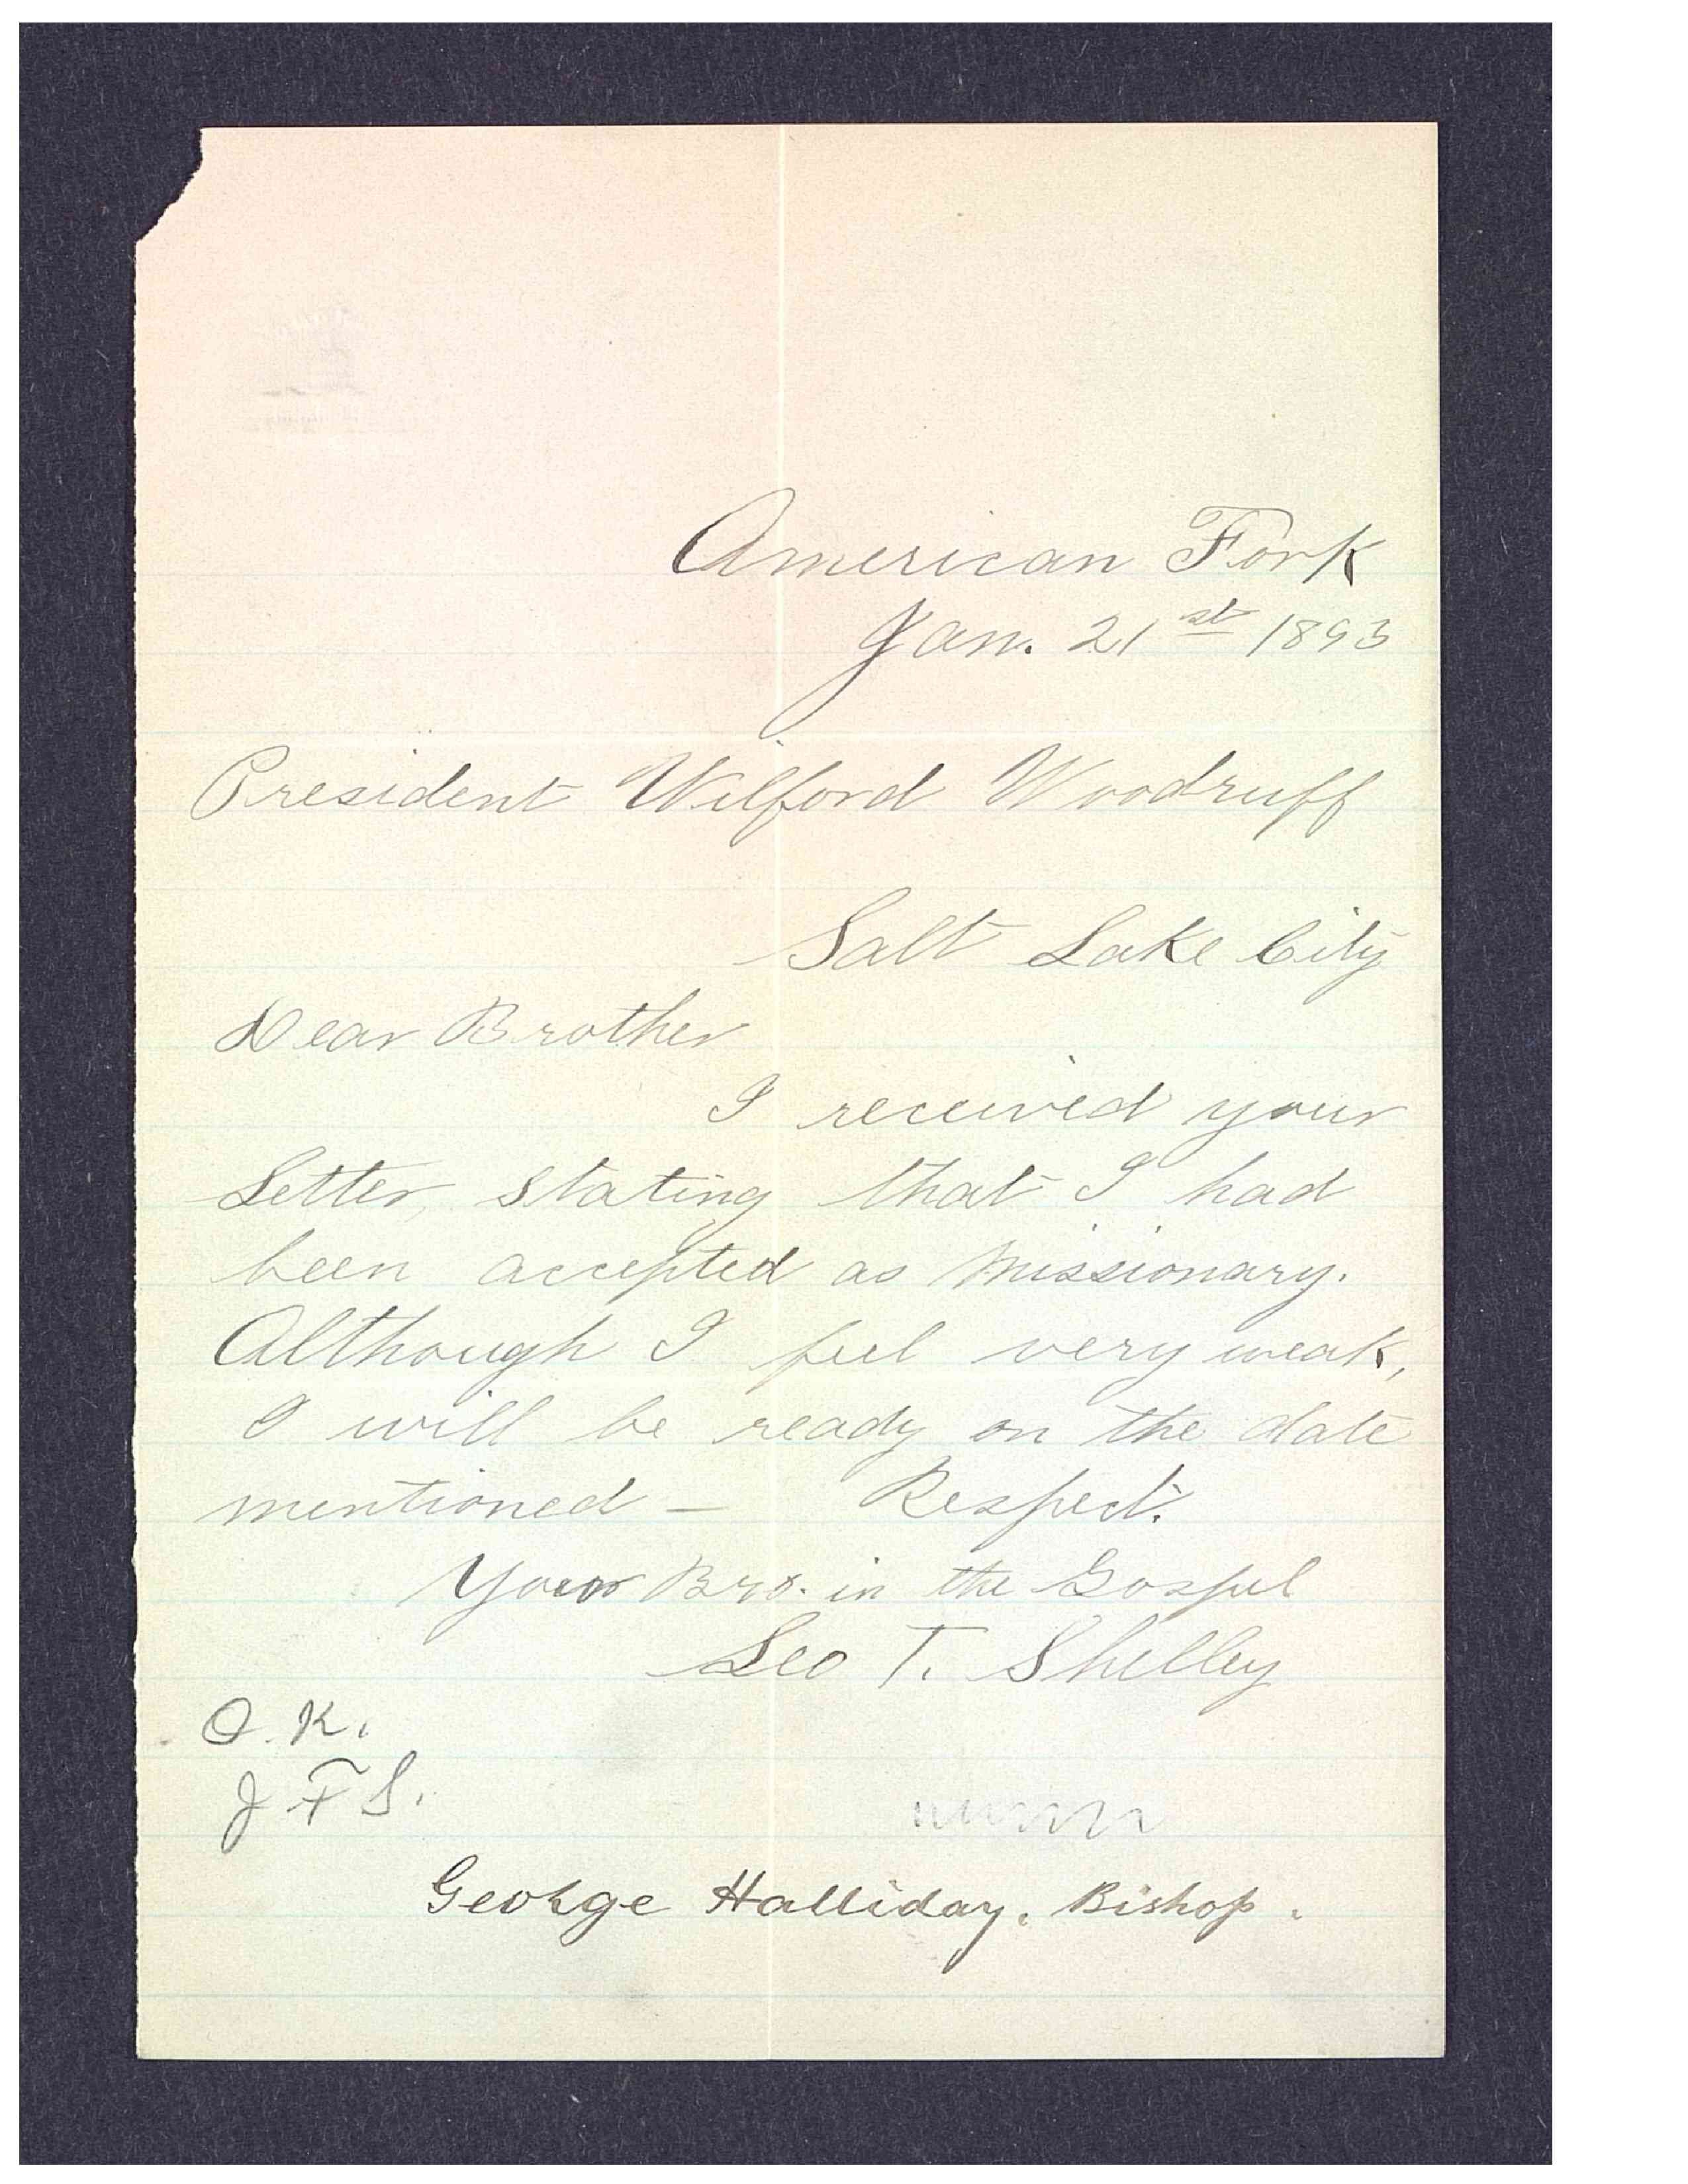 American Fork
Jan. 21st 1893
President Wilford Woodruff
Salt Lake City
Dear Brother
I received your
Letter, stating that I had
been accepted as missionary.
Although I feel very weak,
I will be ready on the date
mentioned — Respect.
Your Bro. in the Gospel
Leo T. Shelley
O.K.
J F S.
George Halliday, Bishop.